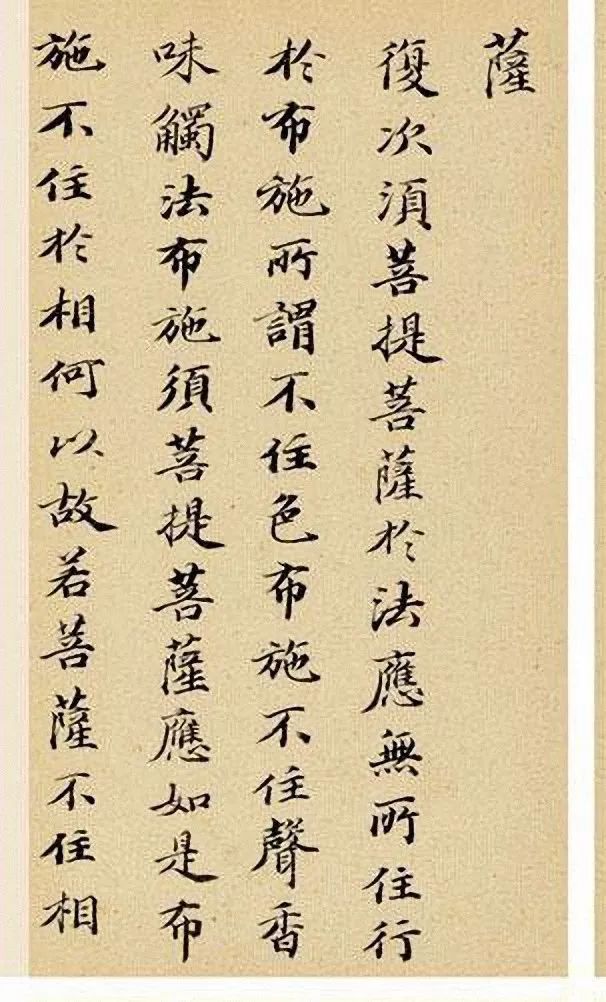 薩
復次須菩提菩薩於法應無所住行
於布施所謂不住色布施不住聲香
味觸法布施須菩提菩薩應如是布
施不住於相何以故若菩薩不住相